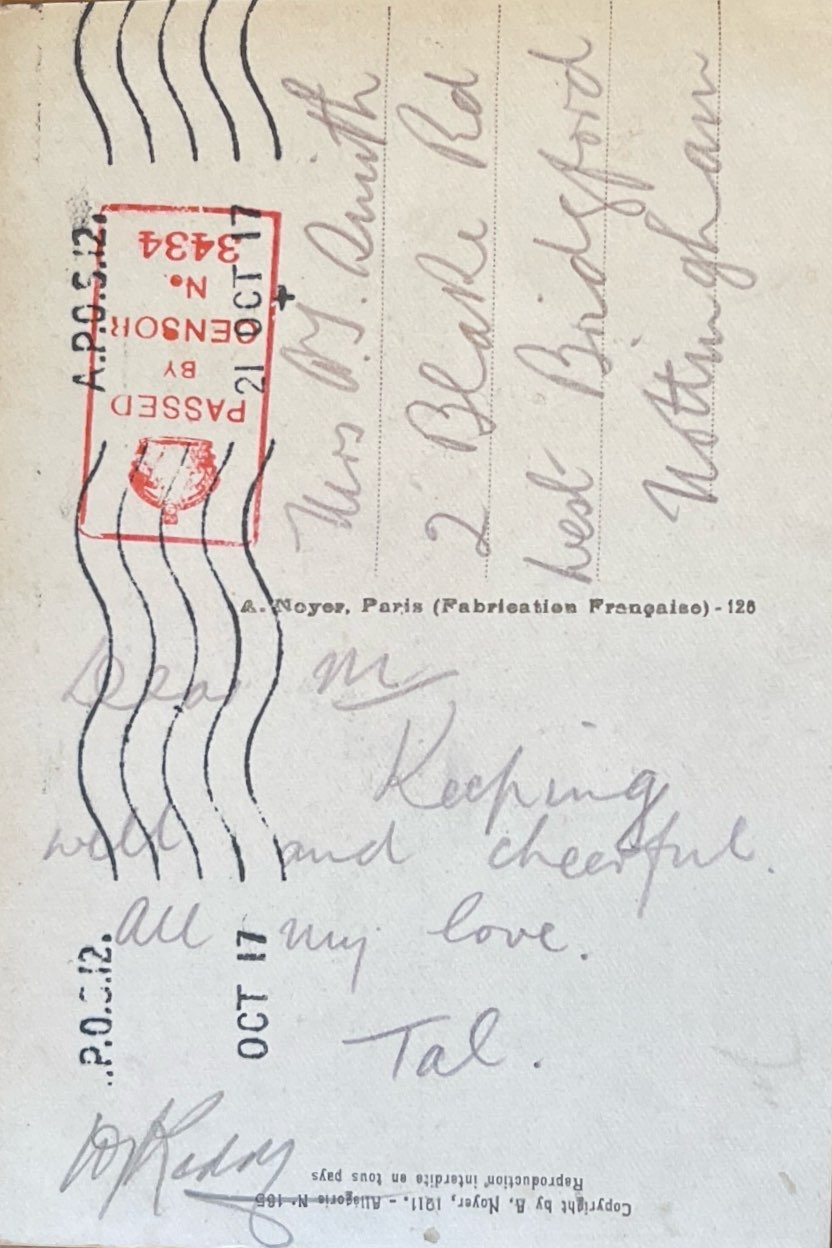 A.P.O.S.12.
21 OCT 17
PASSED
BY
CENSOR
No.
3434
Mrs Smith
2 Blake Rd
West Bridgford
Nottingham
A. Noyer, Paris (Fabrication Française) - 126
Dear M
Keeping
well and cheerful.
All my love.
Tal.
.P.O.S.12.
OCT 17
Copyright by A. Noyer, 1911. - Allégorie N° 165
Reproduction interdite en tous pays